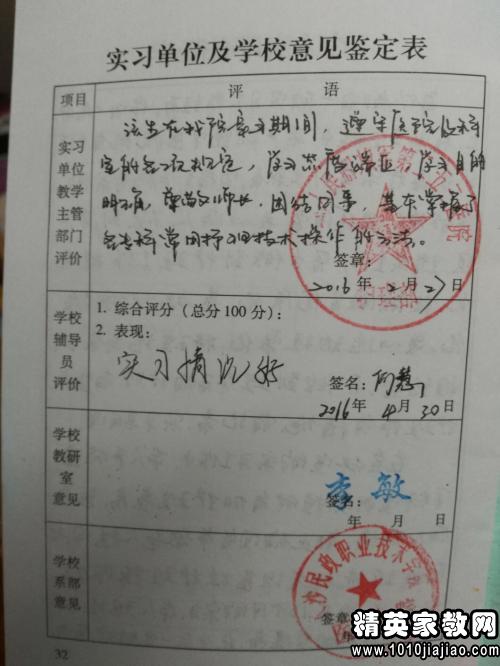 实习单位及学校意见鉴定表
项目
评 语
实习
单位
教学
主管
部门
评价
该生在我院实习期间，遵守医院各科
室的各项规定，学习态度端正，学习目的
明确，尊敬师长，团结同事，基本掌握了
各专科常用护理技术操作的方法。
签章：
2016年2月27日
学校
辅导
员
评价
1. 综合评分（总分 100 分）：
2. 表现：
实习情况好
签名：
2016年4月30日
学校
教研
室
意见
李敏
签名：
年 月 日
学校
系部
意见
沙民政职业技术学
签章
年
32
精英家教网
www.1010jiajiao.com